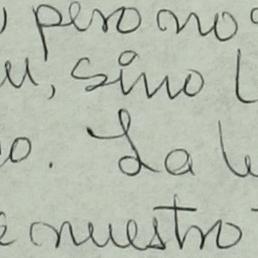 , pero no
, sino
o. La
nuestro